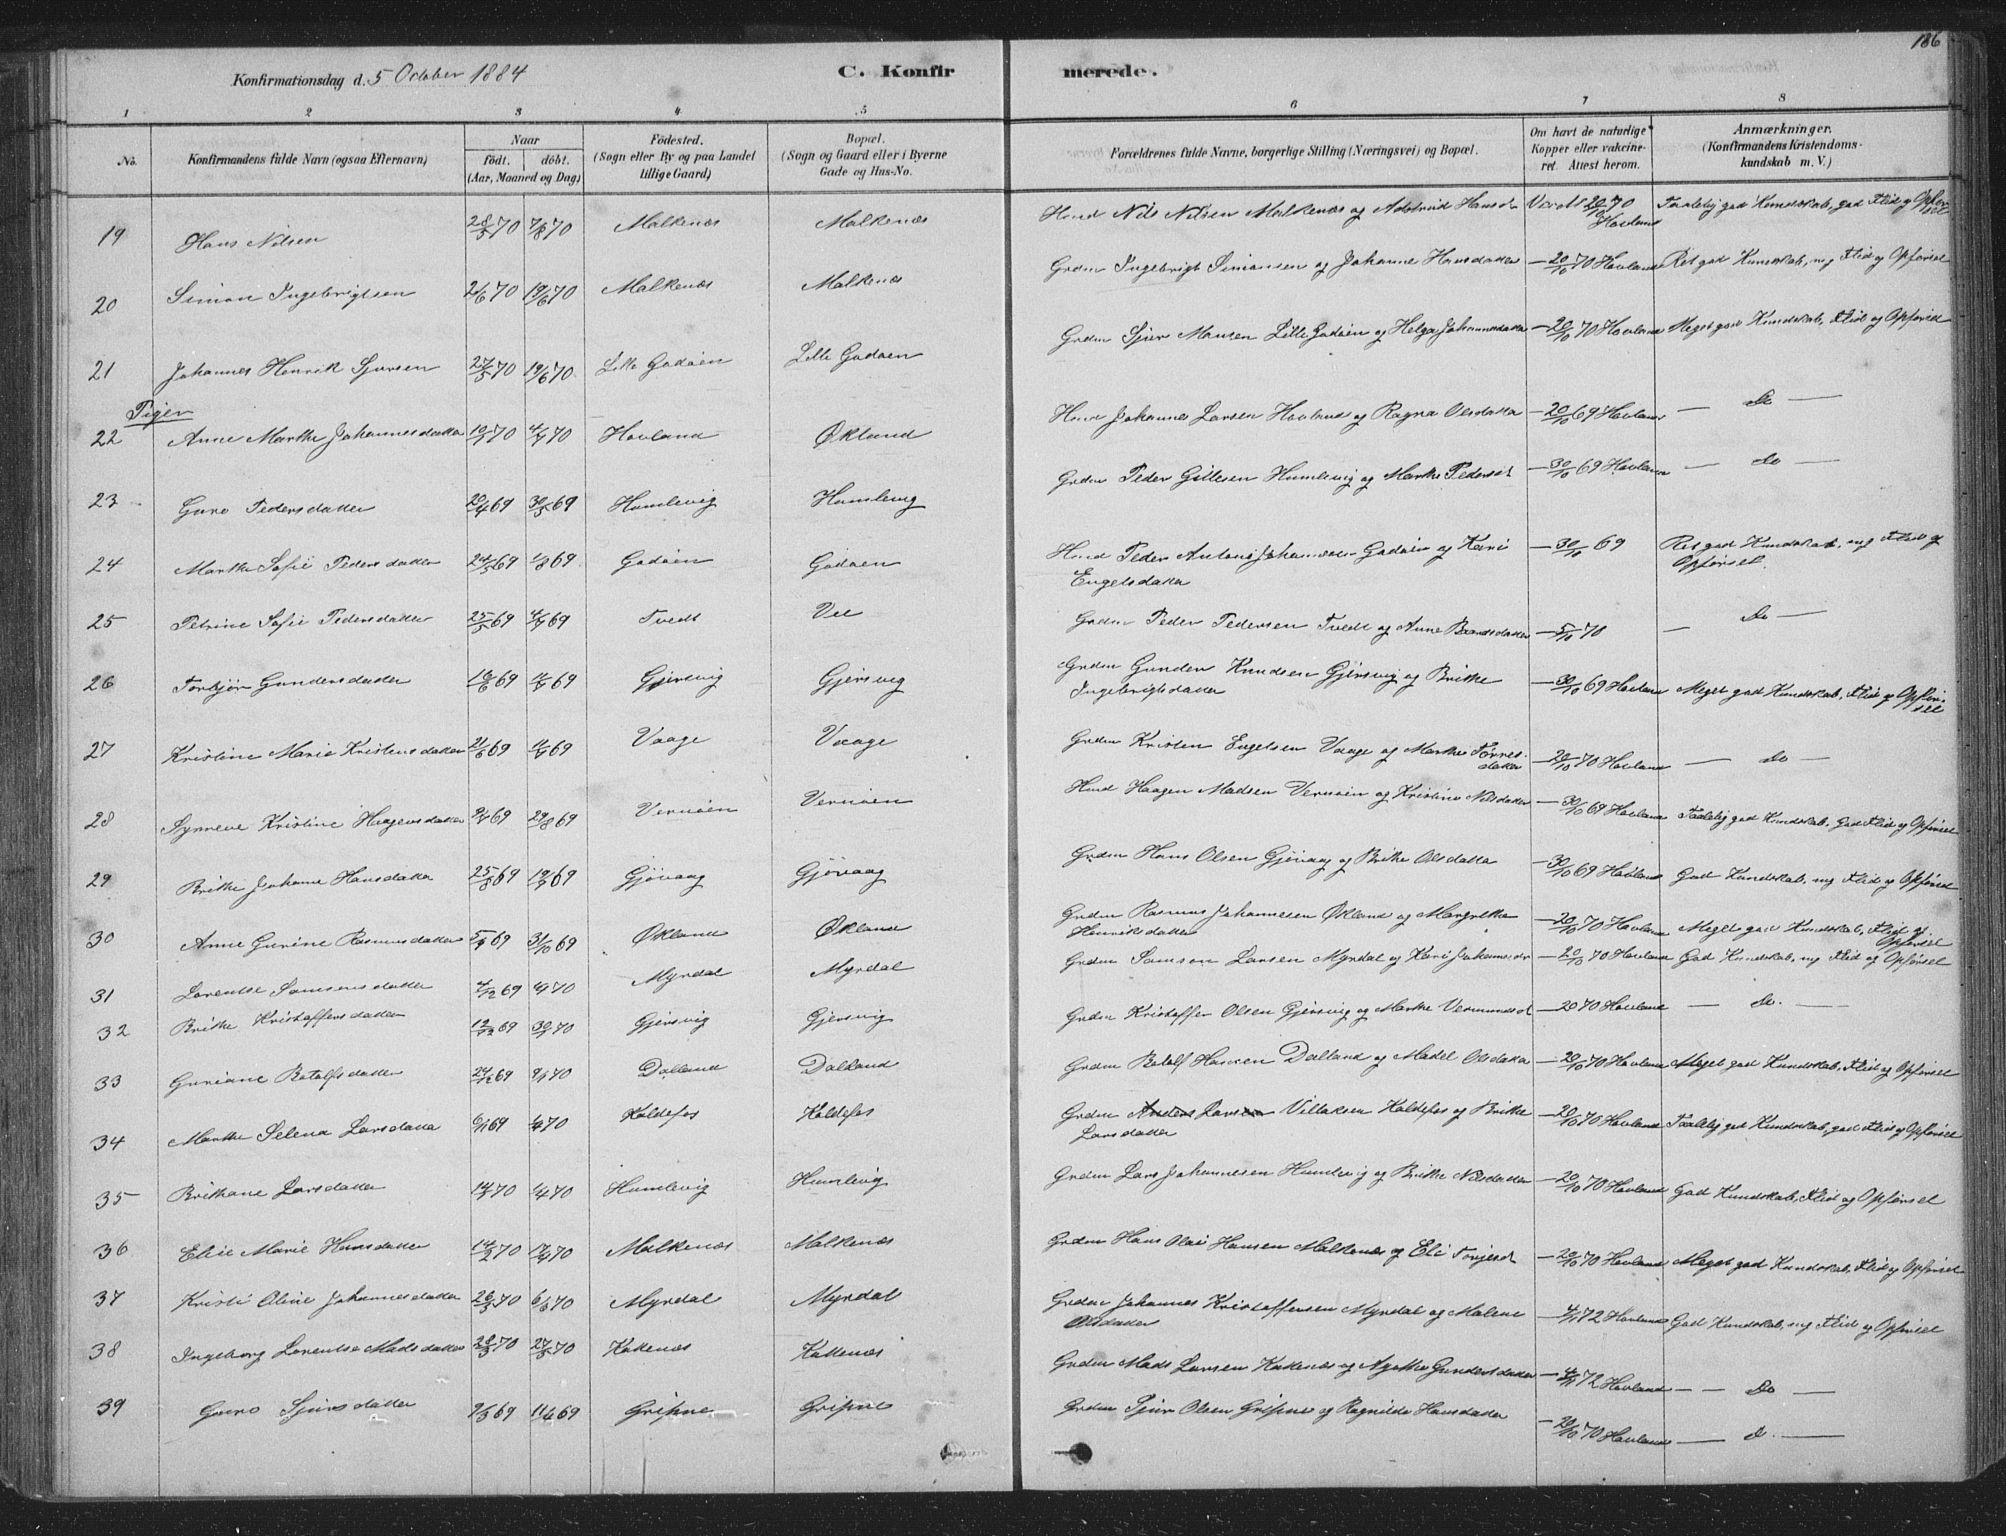 186
Konfirmationsdag d. 5 October 1884
C. Konfirmerede.
1 2 3 4 5 6 7 8
No.
Konfirmandens fulde Navn (ogsaa Efternavn)
Naar
födt. döbt.
(Aar, Maaned og Dag)
Födested.
(Sogn eller By og paa Landet
lillige Gaard)
Bopæl.
(Sogn og Gaard eller i Byerne
Gade og Hus-No.
Forældrenes fulde Navne, borgerlige Stilling (Næringsvei) og Bopæl.
Om havt de naturlige
Kopper eller vakcine-
ret. Attest herom.
Anmærkninger.
(Konfirmandens Kristendoms-
kundskab m. V.)
19 Hans Nilsen 28/5 70 7/8 70 Malkenæs Malkenæs Hmd Nils Nilsen Malkenæs og Hansd 20/10 70 Havland Taalelig god Kundskab, god Flid og Opførsel
20 Simon Ingebrigtsen 2/6 70 19/6 70 Malkenæs Malkenæs Grdm Ingebrigt Simonsen og Johanne Hansdatter — 20/10 70 Havland Ret god Kundskab, mg Flid og Opførsel
21 Johannes Henrik Sjursen 27/5 70 19/6 70 Lille Godøen Lille Godøen Grdm Sjur Monsen Lille Godøen og Helga Johannesdatter — 20/10 70 Havland Meget god Kundskab, Flid og Opførsel
Piger
22 Anne Marthe Johannesdatter 70 70 Havland Økland Hmd Johannes Larsen Havland og Ragna Olsdatter — 20/10 69 Havland — Do —
23 Guro Pedersdatter 20/4 69 30/5 69 Humlevig Humlevig Grdm Peder Gittlesen Humlevig og Marthe Pedersd — 30/10 69 Havland — do —
24 Marthe Sofie Pedersdatter 24/5 69 1/8 69 Godøen Godøen Hmd Peder Antoni Johannesen Godøen og Kari
Engelsdatter — 30/10 69 Ret god Kundskab, mg Flid og
Opførsel.
25 Petrine Sofie Pedersdatter 25/5 69 4/7 69 Tvedt Grdm Peder Pedersen Tvedt og Anne — 5/10 70 — Do —
26 Torbjør Gundersdatter 16/6 69 69 Gjersvig Gjersvig Grdm Gunder Knudsen Gjersvig og Brithe
Ingebrigtsdatter — 30/10 69 Havland Meget god Kundskab, Flid og Opførsel
27 Kristine Marie Kristensdatter 21/6 69 69 Vaage Vaage Grdm Kristen Engelsen Vaage og Marthe Tørres-
datter — 20/10 70 Havland — do —
28 Synneve Kristine Haagensdatter 69 29/8 69 Vernøen Vernøen Hmd Haagen Madsen Vernøen og Kristine Nilsdatter — 30/10 69 Havland Taalelig god Kundskab, God Flid og Opførsel
29 Brithe Johanne Hansdatter 25/8 69 19/9 69 Gjøvaag Gjøvaag Grdm Hans Olsen Gjøvaag og Brithe Olsdatter — 30/10 69 Havland God Kundskab, mg Flid og Opførsel
30 Anne Gurine Rasmusdatter 69 31/10 69 Økland Økland Grdm Rasmus Johannesen Økland og Margrethe
Henriksdatter — 20/10 70 Havland Meget god Kundskab, Flid og
Opførsel
31 Lorentse Samsonsdatter 4/12 69 70 Myrdal Myrdal Grdm Samson Larsen Myrdal og Kari Johannesdr — 20/10 70 Havland God Kundskab, mg Flid og Opførsel
32 Brithe Kristoffersdatter 69 70 Gjersvig Gjersvig Grdm Kristoffer Olsen Gjersvig og Marthe — 20 70 Havland — do. —
33 Guriane Botolfsdatter 24/12 69 70 Dalland Dalland Grdm Botolf Hansen Dalland og Madel Olsdatter — 20/10 70 Havland Meget god Kundskab, Flid og Opførsel
34 Marthe Selena Larsdatter 69 70 Koldefos Koldefos Grdm Anders Larsen Villaksen Koldefos og Brithe
Larsdatter — 20/10 70 Havland Taalelig god Kundskab, god Flid og Opførsel
35 Brithane Larsdatter 70 70 Humlevig Humlevig Grdm Lars Johannesen Humlevig og Brithe Nilsdatter — 20/10 70 Havland God Kundskab, Flid og Opførsel
36 Elie Marie Hansdatter 14/2 70 17/4 70 Malkenæs Malkenæs Grdm Hans Olai Hansen Malkenæs og Eli Torjesd — 20/10 70 Havland Meget god Kundskab, Flid og Opførsel
37 Kristi Oline Johannesdatter 26/3 70 70 Myrdal Myrdal Grdm Johannes Kristoffersen Myrdal og Malene
Olsdatter — 4/11 72 Havland God Kundskab, mg Flid og Opførsel
38 Ingeborg Lorentse Madsdatter 28/3 70 70 Kattenæs Kattenæs Grdm Mads Larsen Kattenæs og Agathe Gundersdatter — 4/11 72 Havland — — Do —
39 Guro Sjursdatter 9/3 69 11/4 69 Gripne Gripne Grdm Sjur Olsen Gripne og Ragnilde Hansdatter — 20/10 70 Havland — d. —